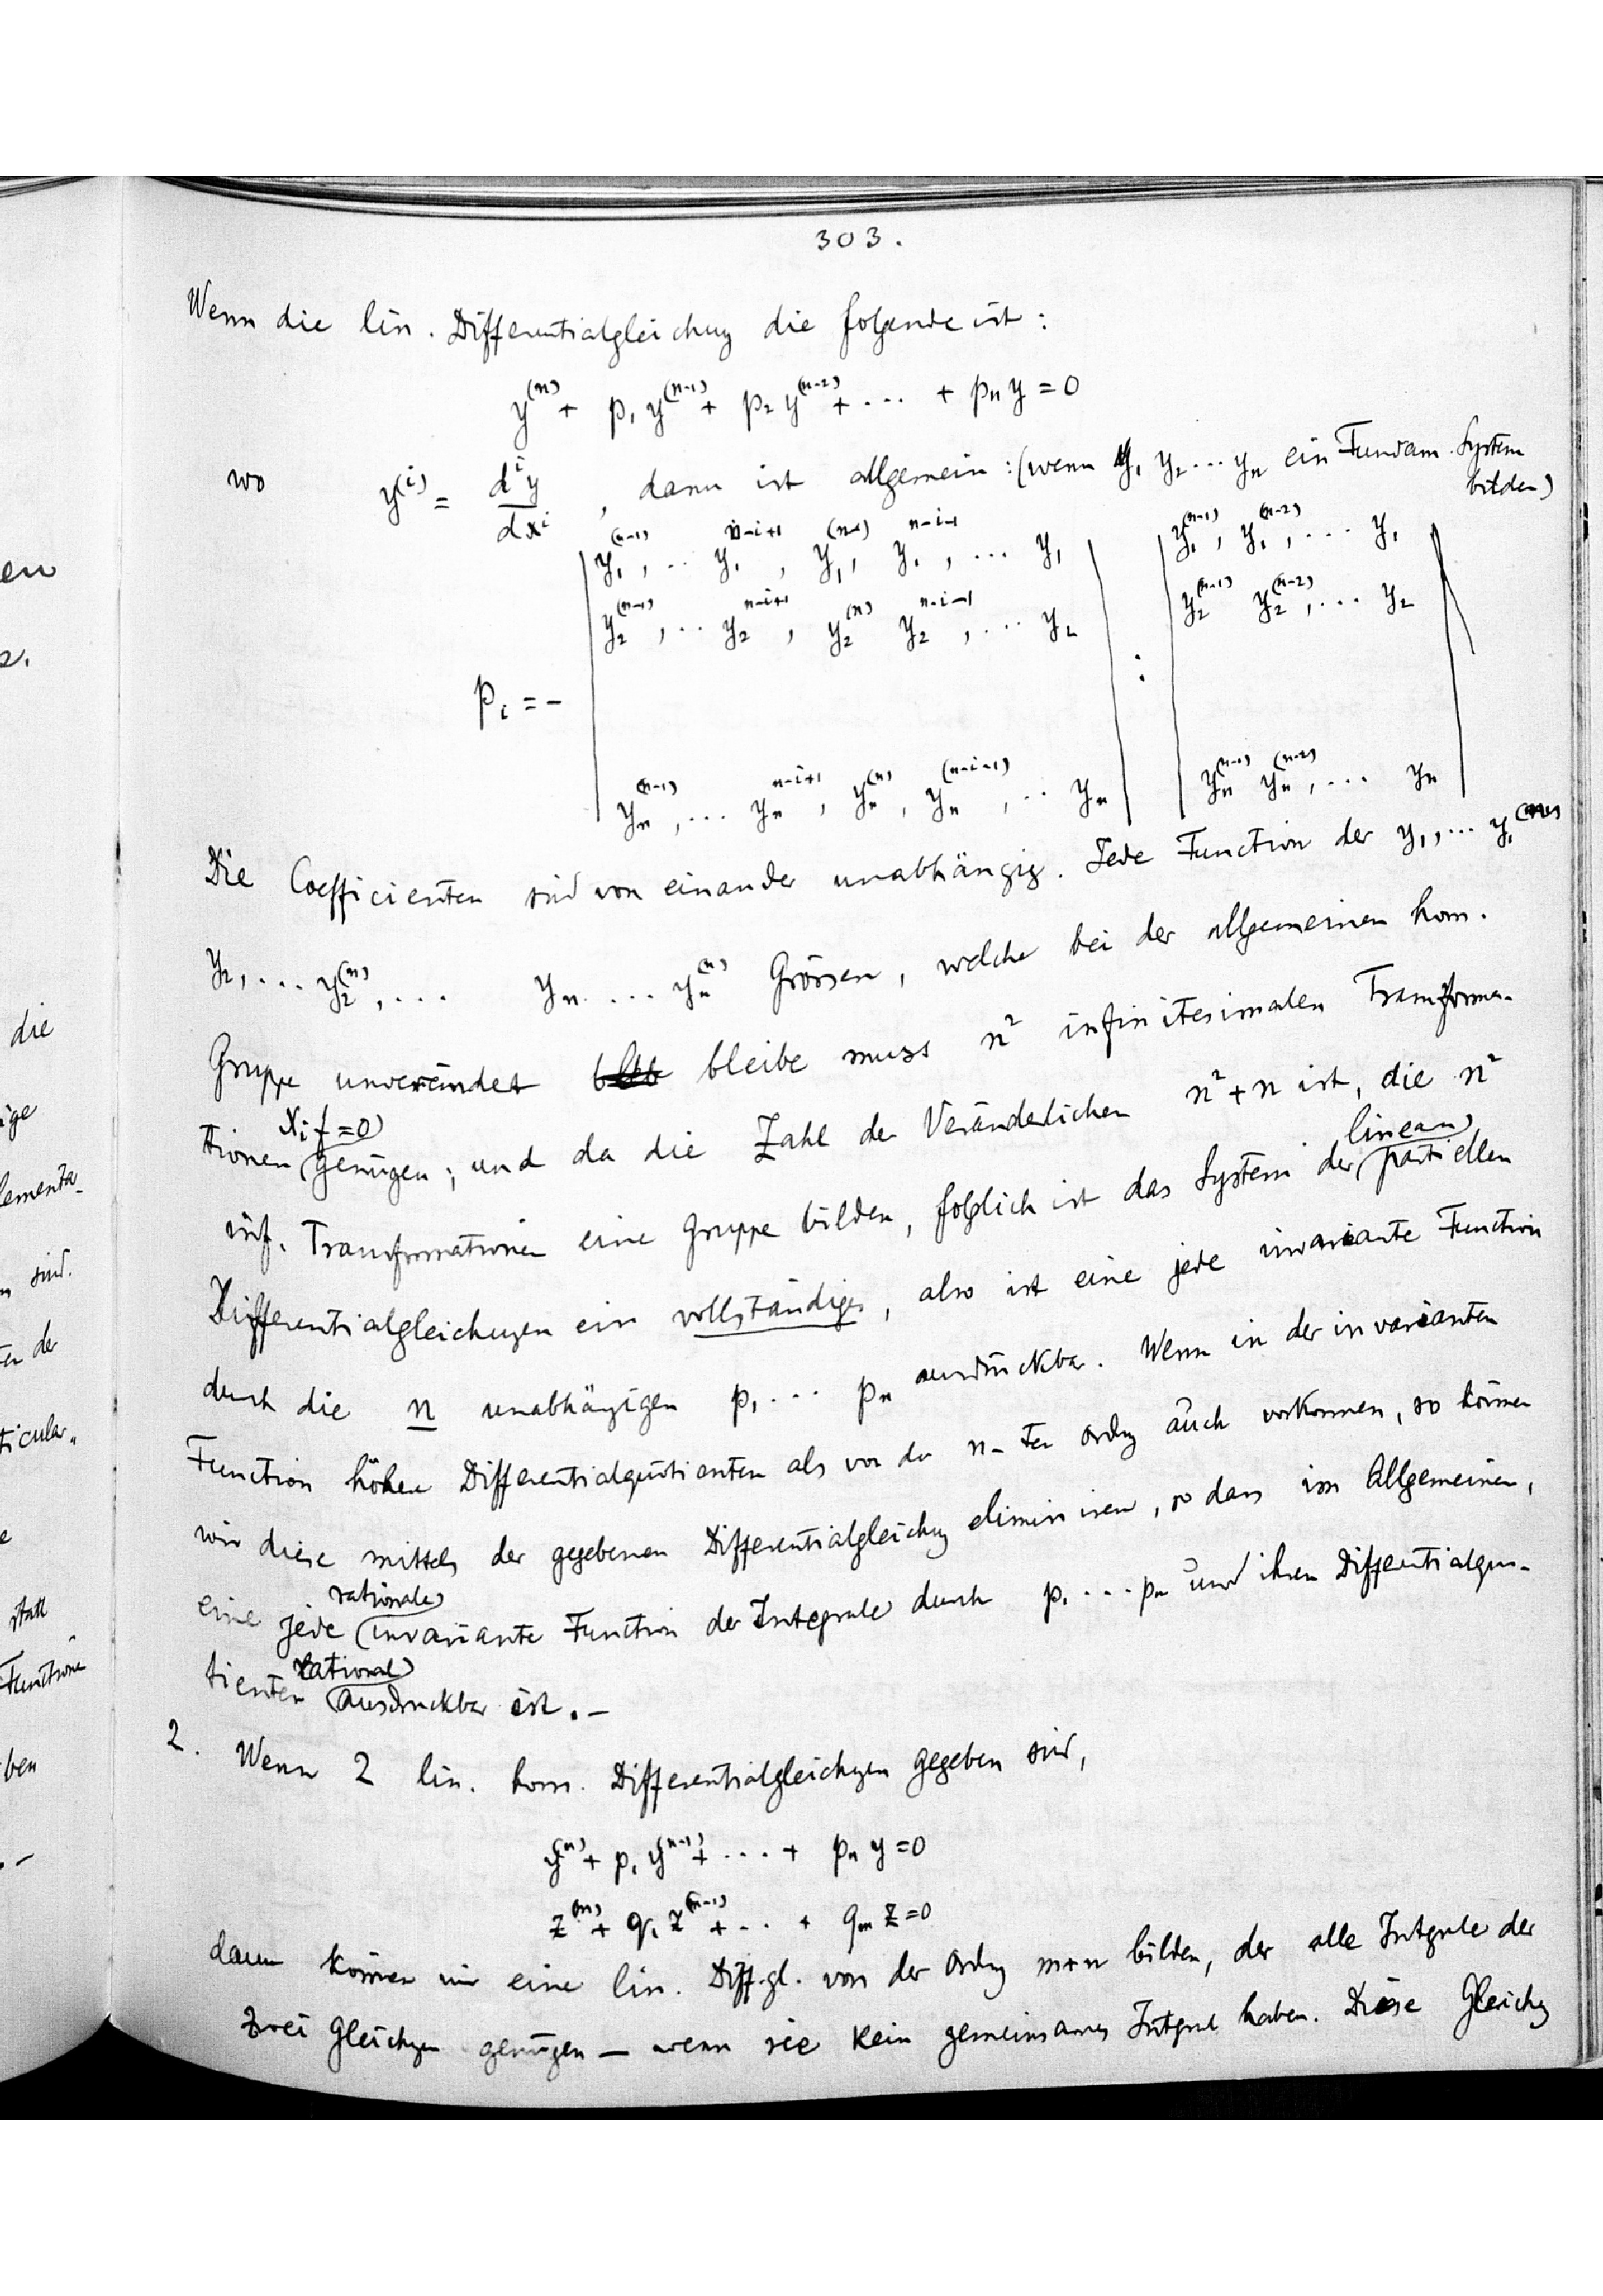 303.
Wenn die lin. Differentialgleichung die folgende ist:
y^(n) + p₁ y^(n-1) + p₂ y^(n-2) + ... + pₙ y = 0
wo y^(i) = dⁱy/dxⁱ, dann ist allgemein: (wenn y₁ y₂ ... yₙ ein Fundam. System
bilden)
y₁^(n-1), .. y₁^n-i+1, y₁^(n), y₁^n-i-1, ... y₁ y₁^(n-1), y₁^(n-2), ... y₁
y₂^(n-1), .. y₂^n-i+1, y₂^(n) y₂^n-i-1, ... y₂ y₂^(n-1) y₂^(n-2), ... y₂
pᵢ = - :
yₙ^(n-1), ... yₙ^n-i+1, yₙ^(n), yₙ^(n-i-1), .. yₙ yₙ^(n-1) yₙ^(n-2), ... yₙ
Die Coefficienten sind von einander unabhängig. Jede Function der y₁, ... y₁^(n)
y₂, ... y₂^(n), ... yₙ ... yₙ^(n) Grössen, welche bei der allgemeinen hom.
Gruppe unverändet bleibe muss n² infinitesimalen Transforma-
Xᵢf=0
tionen genügen; und da die Zahl der Veränderlichen n²+n ist, die n²
linearen
inf. Transformationen eine Gruppe bilden, folglich ist das System der partiellen
Differentialgleichungen ein vollständiges, also ist eine jede invariante Function
durch die n unabhängigen p₁ ... pₙ ausdrückbar. Wenn in der invarianten
Function höhere Differentialquotienten als von der n-ten Ordng auch vorkommen, so können
wir diese mittels der gegebenen Differentialgleichung eliminiren, so dass im Allgemeinen,
rationale
eine jede invariante Function der Integrale durch p₁ ... pₙ und ihren Differentialquo-
rational
tienten ausdruckbar ist. –
2. Wenn 2 lin. hom. Differentialgleichgen gegeben sind,
y^(n) + p₁ y^(n-1) + ... + pₙ y = 0
z^(m) + q₁ z^(m-1) + ... + qₘ z = 0
dann können wir eine lin. Diff.gl. von der Ordng m+n bilden, der alle Intgrale der
zwei Gleichgen genügen – wenn sie kein gemeinsames Intgral haben. Diese Gleichg
en
die
ige
lementa-
sind.
der
ticular-
statt
Functione
ben